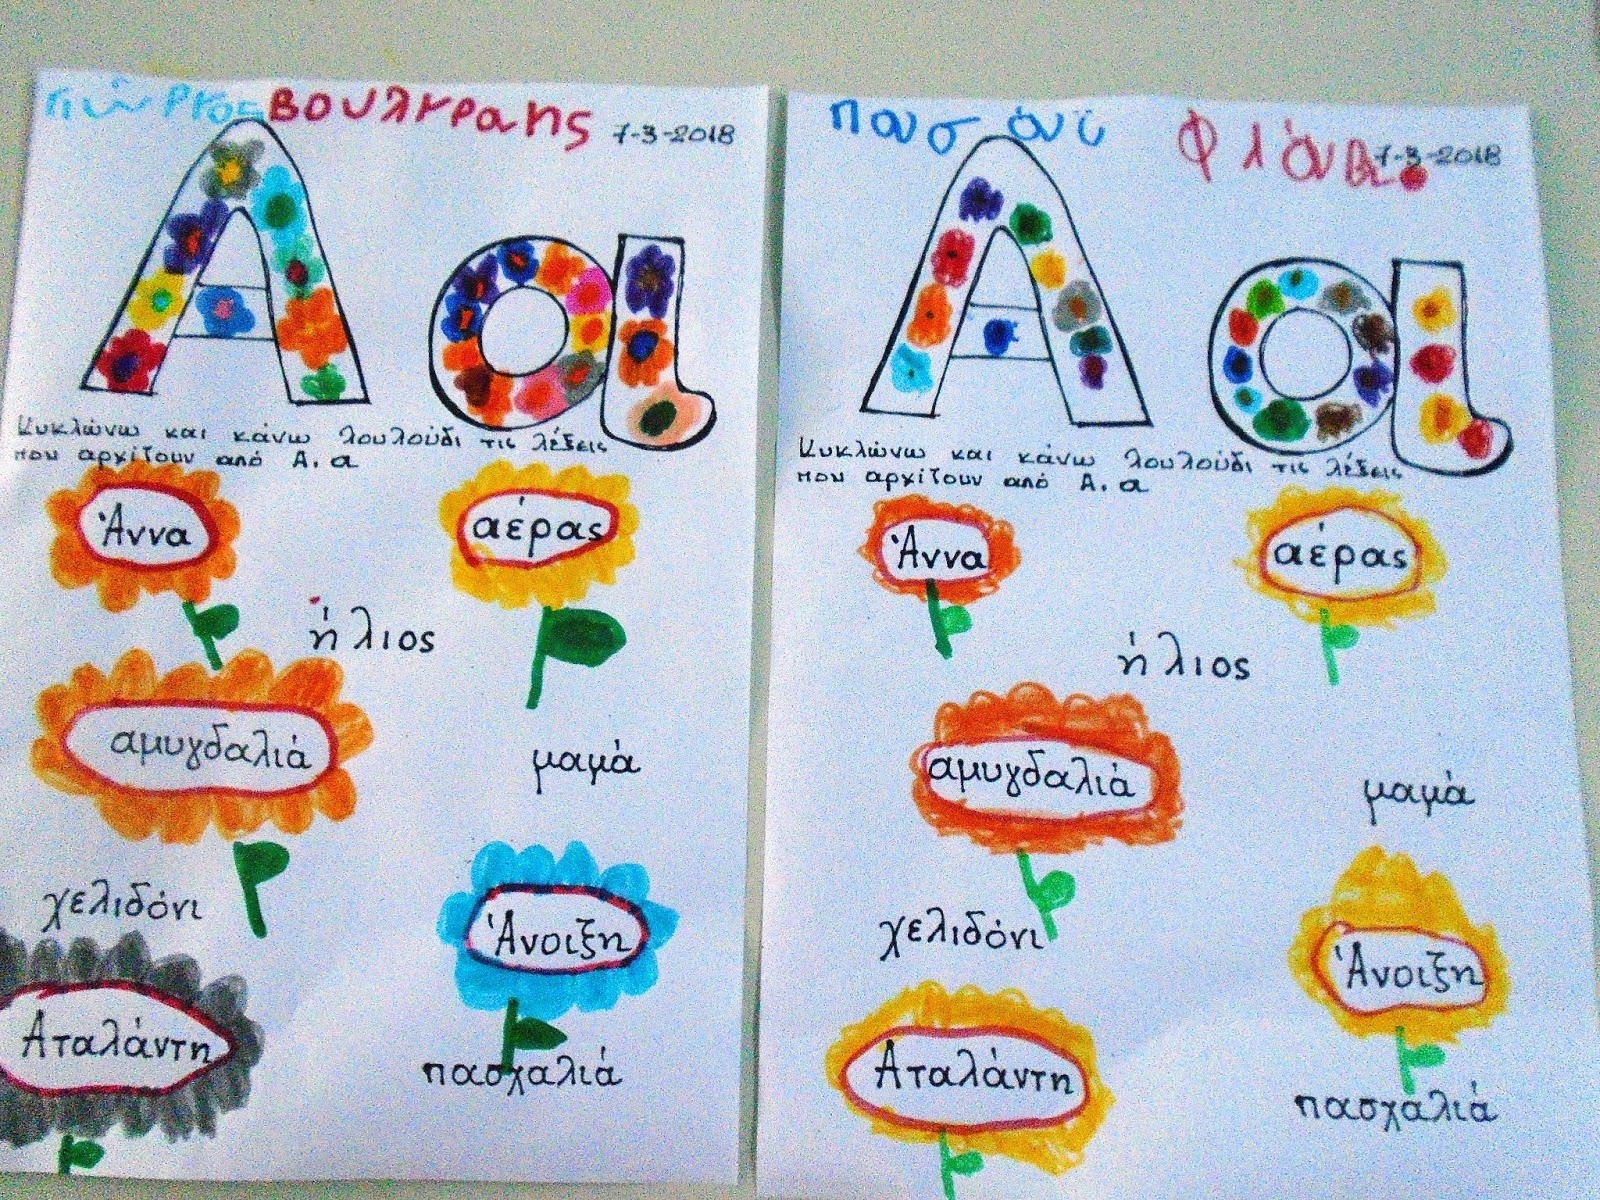 Βουλγρακης 7-3-2018
Α α
Κυκλώνω και κάνω λουλούδι τις λέξεις
που αρχίζουν από Α, α
Άννα αέρας
ήλιος
αμυγδαλιά
μαμά
χελιδόνι
Άνοιξη
Αταλάντη
πασχαλιά
7-3-2018
Α α
Κυκλώνω και κάνω λουλούδι τις λέξεις
που αρχίζουν από Α, α
Άννα αέρας
ήλιος
αμυγδαλιά
μαμά
χελιδόνι
Άνοιξη
Αταλάντη
πασχαλιά